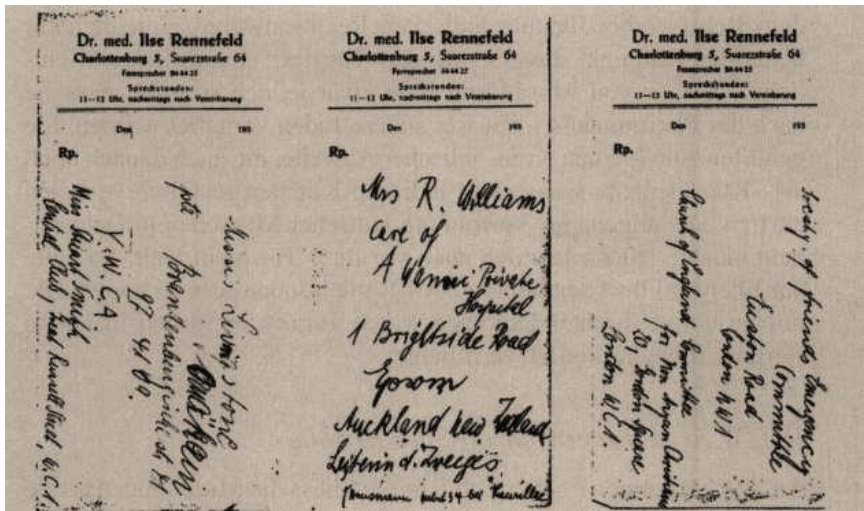 Dr. med. Ilse Rennefeld
Charlottenburg 5, Suarezstraße 64
Fernsprecher 34 44 25
Sprechstunden:
11—12 Uhr, nachmittags nach Vereinbarung
Den 193
Rp.
pte
Y.W.C.A
Miss Stuart Smith
Central Club, Great Russell Street, W.C.1.
Dr. med. Ilse Rennefeld
Charlottenburg 5, Suarezstraße 64
Fernsprecher 34 44 25
Sprechstunden:
11—12 Uhr, nachmittags nach Vereinbarung
Den 193
Rp.
Mrs R. Williams
Care of
A Private
Hospital
1 Brightside Road
Epsom
Auckland new Zealand
Leiterin d. Zweiges
Dr. med. Ilse Rennefeld
Charlottenburg 5, Suarezstraße 64
Fernsprecher 34 44 25
Sprechstunden:
11—12 Uhr, nachmittags nach Vereinbarung
Den 193
Rp.
Society of friends Emergency
Committee
Euston Road
London N.W.1
Church of England Committee
for Non Aryan Christians
20, Gordon Square
London W.C.1.